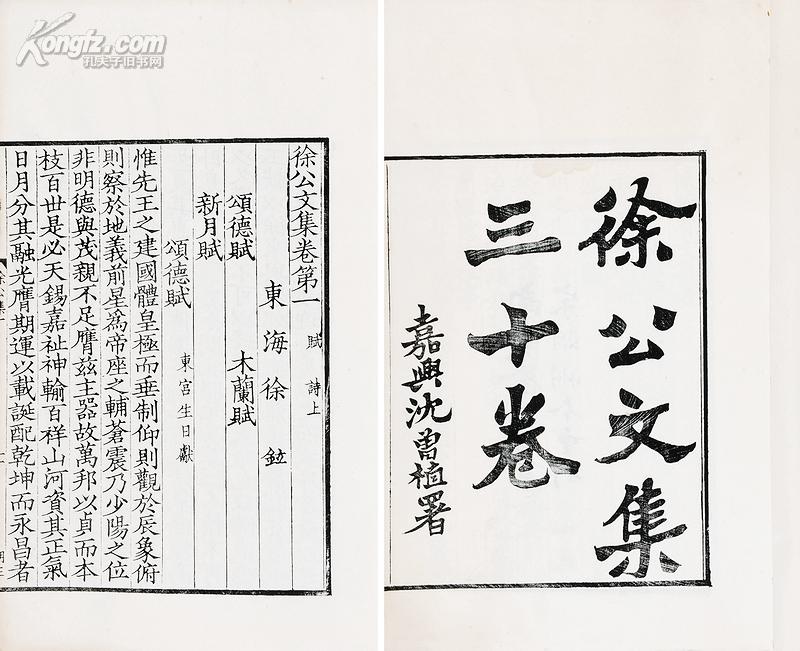 徐公文集
三十卷
嘉興沈曾植署
徐公文集卷第一 賦 詩上
東海徐鉉
頌德賦 木蘭賦
新月賦
頌德賦 東宮生日獻
惟先王之建國體皇極而垂制仰則觀於辰象俯
則察於地義前星爲帝座之輔蒼震乃少陽之位
非明德與茂親不足膺兹主器故萬邦以貞而本
枝百世是必天錫嘉祉神輸百祥山河資其正氣
日月分其融光膺期運以載誕配乾坤而永昌者
徐公集一
Kongfz.com
孔夫子旧书网